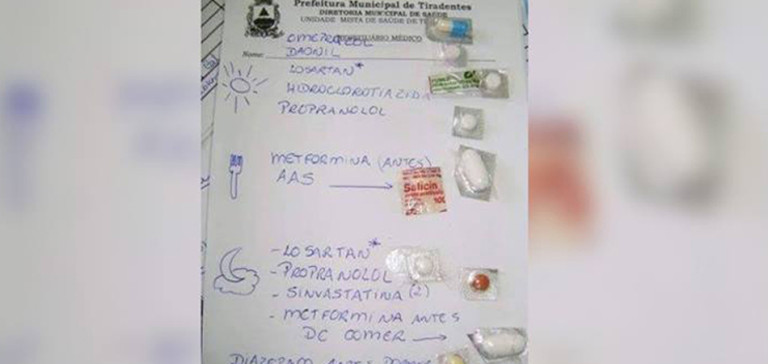 Prefeitura Municipal de Tiradentes
DIRETORIA MUNICIPAL DE SAÚDE
UNIDADE MISTA DE SAÚDE DE
RECEITUÁRIO MÉDICO
Nome:
OMEPRAZOL
DAONIL
LOSARTAN*
HIDROCLOROTIAZIDA
PROPRANOLOL
METFORMINA (ANTES)
AAS
Salicin
100
- LOSARTAN*
- PROPRANOLOL
- SINVASTATINA (2)
- METFORMINA ANTES
DE COMER
DIAZEPAM ANTES